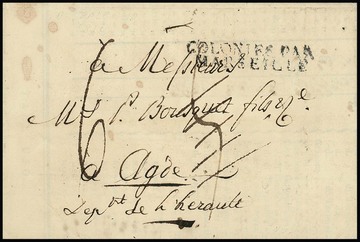 COLONIES PAR
MARSEILLE
à Messieurs
Ms. P. Bousquet fils &
6
à Agde
Dept. de L'hérault